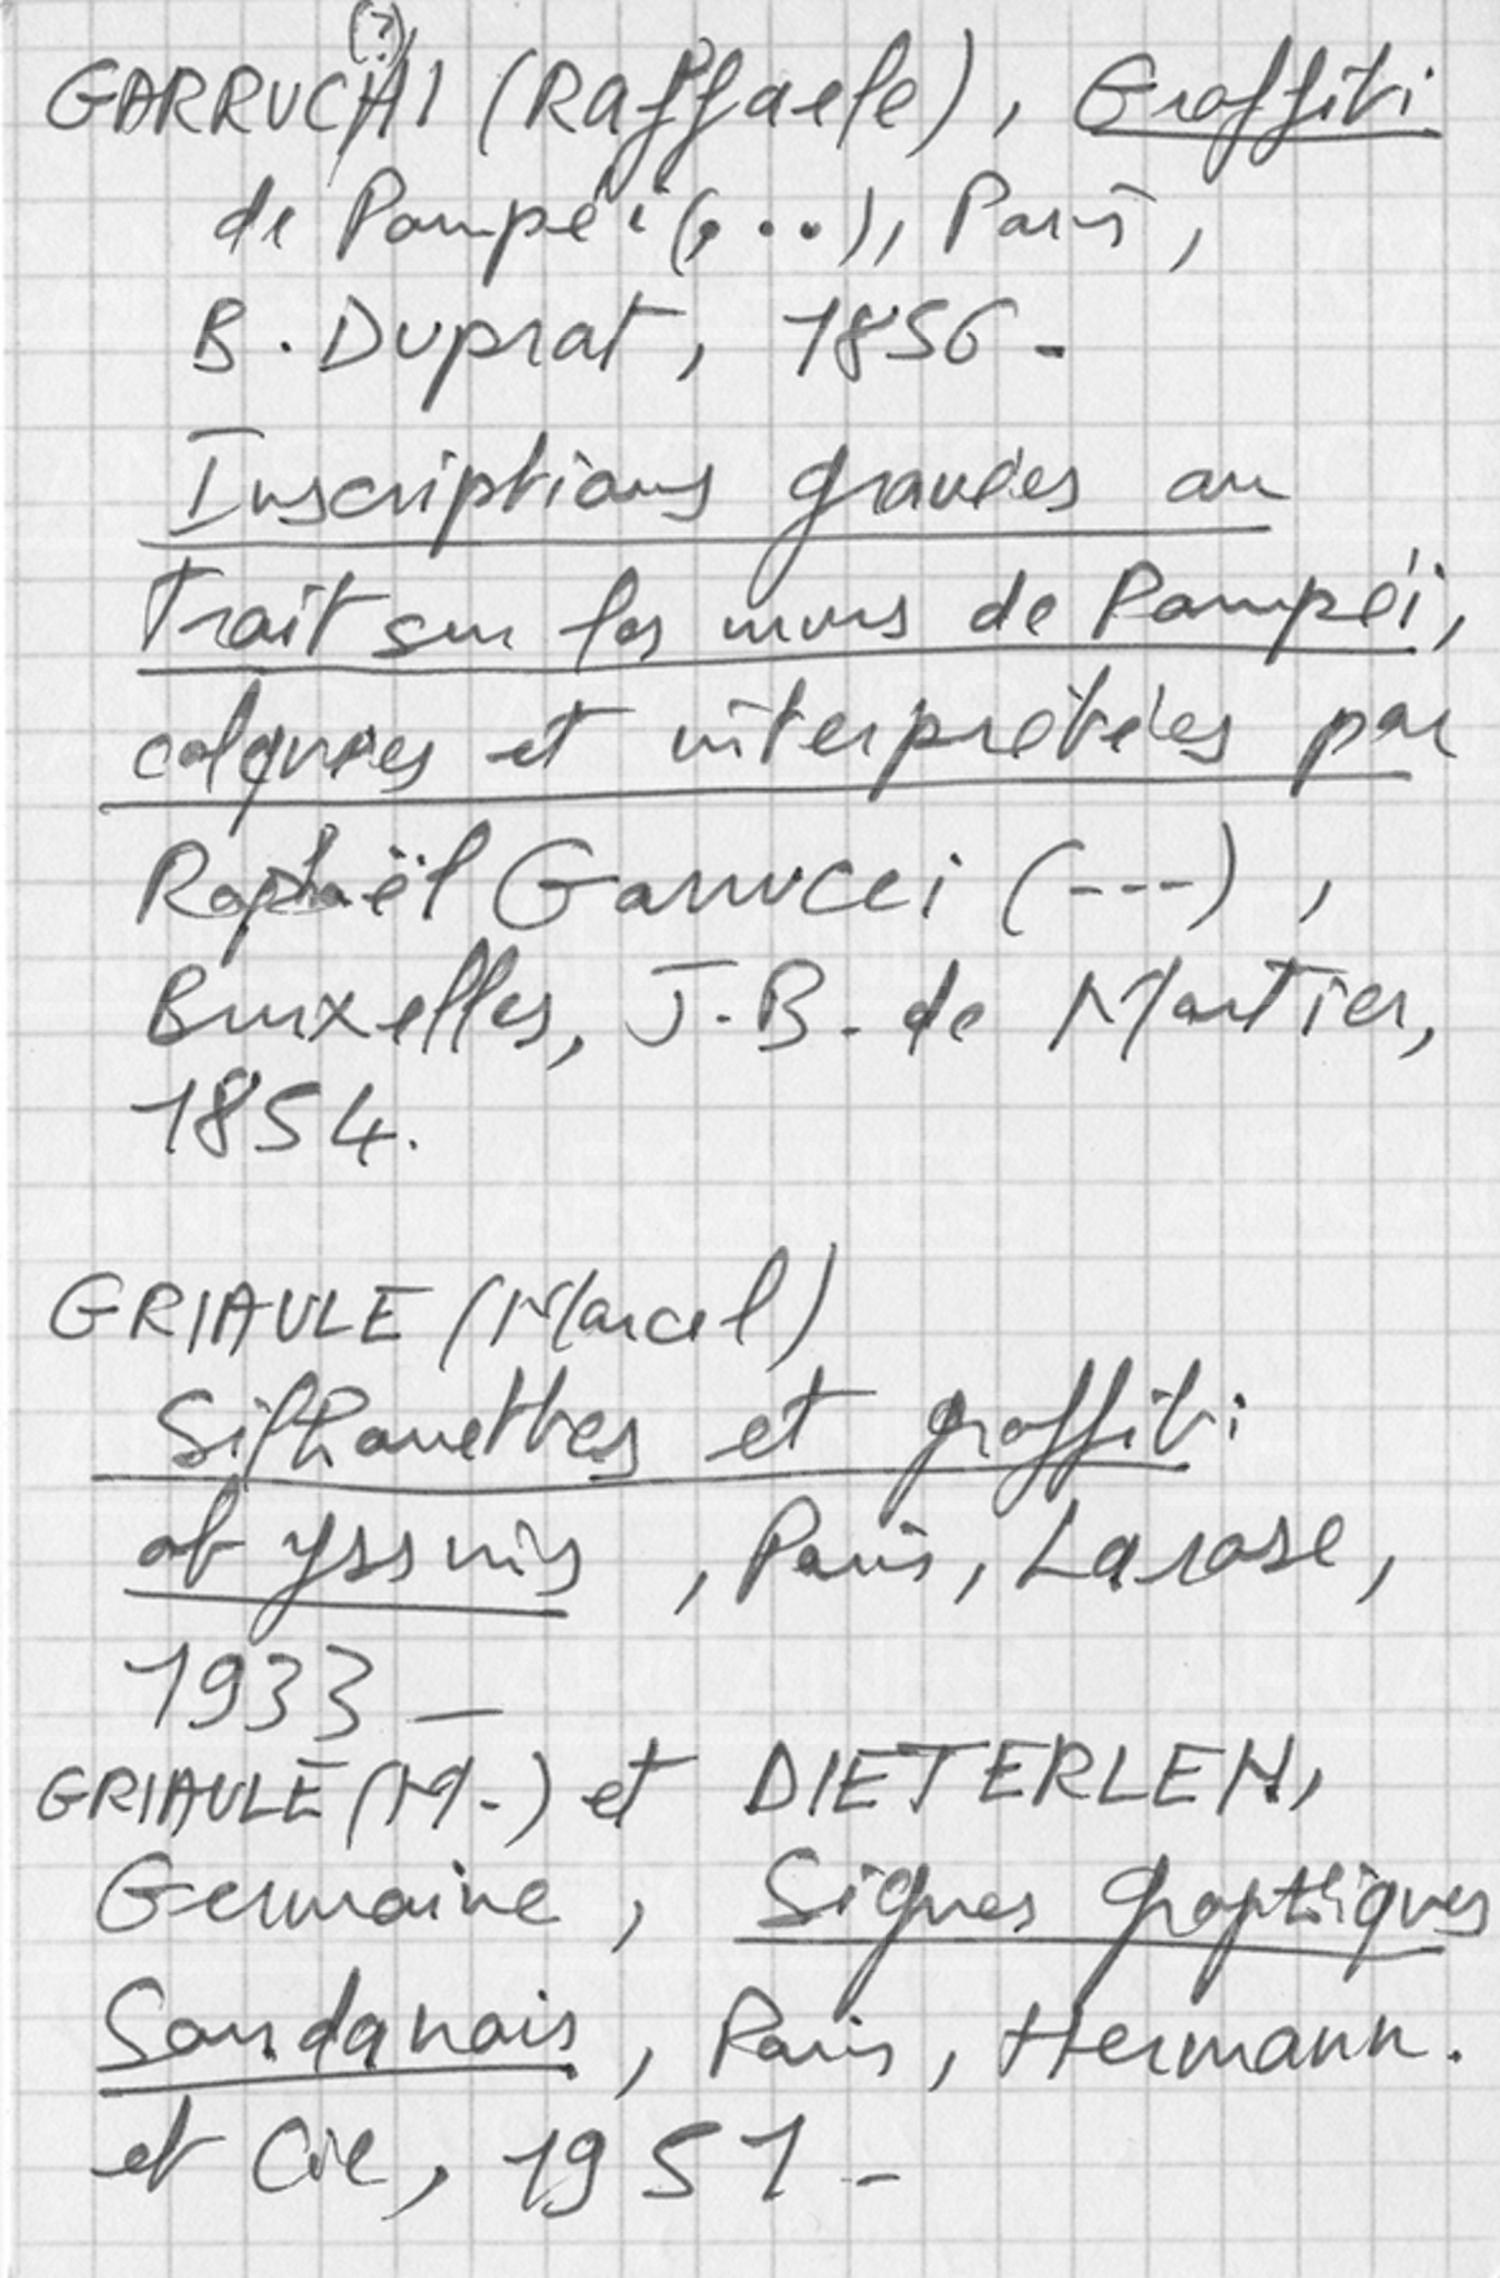 (?)
GARRUCHI (Raffaele), Graffiti
de Pompéi (...), Paris,
B. Duprat, 1856 -
Inscriptions gravées au
trait sur les murs de Pompéi,
calquées et interprétées par
Raphaël Garrucci (---),
Bruxelles, J.B. de Mortier,
1854.
GRIAULE (Marcel)
Silhouettes et graffiti
abyssins, Paris, Larose,
1933 -
GRIAULE (M.) et DIETERLEN,
Germaine, Signes graphiques
Soudanais, Paris, Hermann.
et Cie, 1951 -